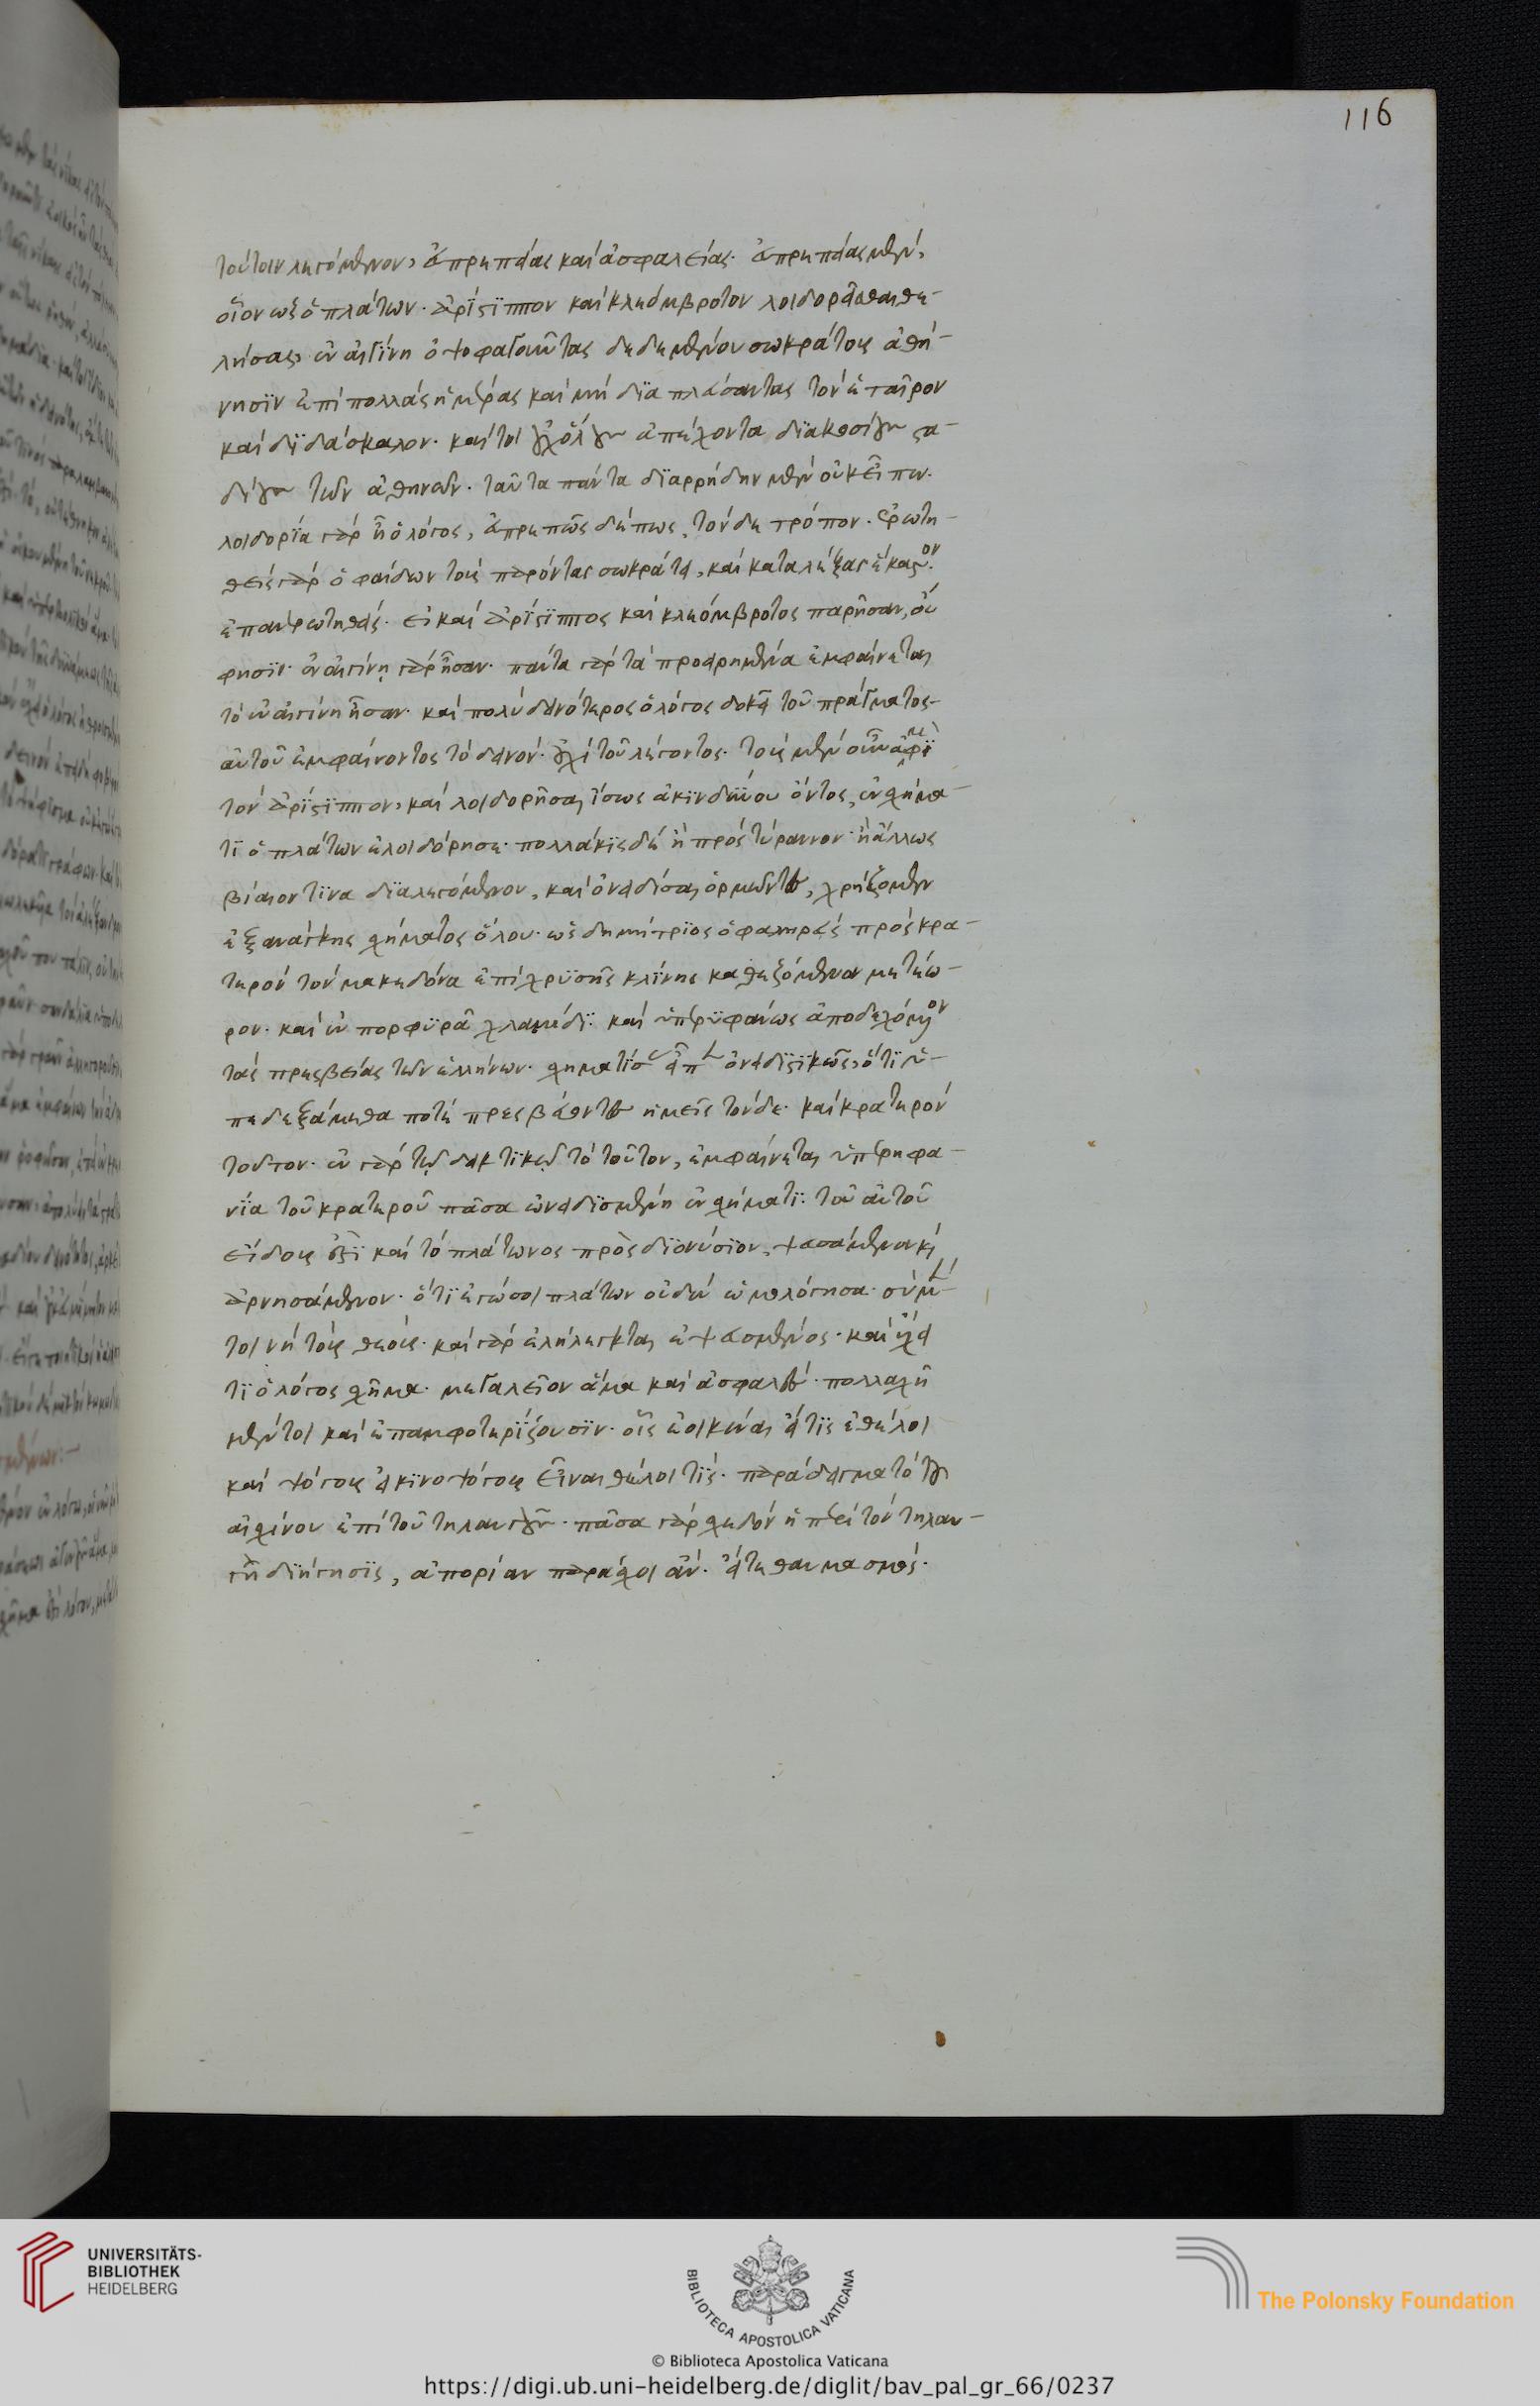 τούτοιν λεγόμενον, εὐπρεπείας καὶ ἀσφαλείας. εὐπρεπείας μὲν,
οἷον ὡς ὁ πλάτων. ἀρίστιππον καὶ κλεόμβροτον λοιδορεῖσθαι θε-
λήσας, ἐν αἰγίνη ὀψοφαγοῦντας δεδεμένου σωκράτους ἀθή-
νησϊν ἐπὶ πολλὰς ἡμέρας καὶ μὴ δϊαπλεύσαντας τὸν ἑταῖρον
καὶ δϊδάσκαλον. καίτοι οὐχ ὅλους ἀπέχοντα δϊακοσίους στα-
δίους τῶν ἀθηνῶν. ταῦτα πάντα δϊαρρήδην μὲν οὐκ εἶπεν.
λοιδορΐα γὰρ ἦν ὁ λόγος, εὐπρεπῶς δέ πως, τόνδε τρόπον. ἐρωτη-
θεὶς γὰρ ὁ φαίδων τοὺς παρόντας σωκράτει, καὶ καταλέξας ἕκαστον.
ἐπανερωτηθεὶς. εἰ καὶ ἀρίστιππος καὶ κλεόμβροτος παρῆσαν, οὔ
φησϊν. ἐν αἰγίνη γὰρ ἦσαν. πάντα γὰρ τὰ προειρημένα ἐμφαίνεται
τὸ ἐν αἰγίνη ἦσαν. καὶ πολὺ δεινότερος ὁ λόγος δοκεῖ τοῦ πράγματος
αὐτοῦ ἐμφαίνοντος τὸ δεινόν. οὐχὶ τοῦ λέγοντος. τοὺς μὲν οὖν ἀμφὶ
τὸν ἀρίστϊππον, καὶ λοιδορῆσαι ἴσως ἀκινδύνου ὄντος, ἐν σχήμα-
τϊ ὁ πλάτων ἐλοιδόρησε. πολλάκϊς δὲ ἢ πρὸς τύραννον ἢ ἄλλως
βίαιον τϊνα δϊαλεγόμενον, καὶ ὀνειδίσαι ὁρμῶντες, χρήζομεν
ἐξανάγκης σχήματος ὅλου. ὡς δημήτρϊος ὁ φαληρεὺς πρὸς κρα-
τερὸν τὸν μακεδόνα ἐπὶ χρυσῆς κλίνης καθεζόμενον μετέω-
ρον. καὶ ἐν πορφϋρᾶ χλαμύδϊ. καὶ ὑπερϋφάνως ἀποδεχόμενον
τὰς πρεσβείας τῶν ἑλλήνων. σχηματίσας εἶπεν ὀνειδϊστϊκῶς, ὅτϊ ὑ-
πεδεξάμεθα ποτὲ πρεσβεύοντες ἡμεῖς τούσδε. καὶ κρατερὸν
τοῦτον. ἐν γὰρ τῶ δεικτϊκῶ τὸ τοῦτον, ἐμφαίνεται ὑπερηφα-
νΐα τοῦ κρατεροῦ πᾶσα ὠνειδϊσμένη ἐν σχήματϊ. τοῦ αὐτοῦ
εἴδους ἐστὶ καὶ τὸ πλάτωνος πρὸς δϊονύσϊον, ψευσάμενον καὶ
ἀρνησάμενον. ὅτϊ ἐγώ σοι πλάτων οὐδὲν ὡμολόγησα. σὺ μέν-
τοι νὴ τοὺς θεούς. καὶ γὰρ ἐλήλεγκται ἐψευσμένος. καὶ ἔχει
τϊ ὁ λόγος σχῆμα. μεγαλεῖον ἅμα καὶ ἀσφαλές. πολλαχῆ
μέντοι καὶ ἐπαμφοτερίζουσϊν. οἷς ἐοικέναι εἴ τϊς ἐθέλοι
καὶ ψόγους εἰκϊνοψόγους εἶναι θέλοι τϊς. παράδειγμα τὸ τοῦ
αἰσχίνου ἐπὶ τοῦ τηλαυγοῦς. πᾶσα γὰρ σχεδὸν ἡ περὶ τὸν τηλαυ-
γῆ δϊήγησϊς, ἀπορίαν παράσχοι ἂν. εἴτε θαυμασμὸς.
116
UNIVERSITÄTS-
BIBLIOTHEK
HEIDELBERG
BIBLIOTECA APOSTOLICA VATICANA
The Polonsky Foundation
© Biblioteca Apostolica Vaticana
https://digi.ub.uni-heidelberg.de/diglit/bav_pal_gr_66/0237